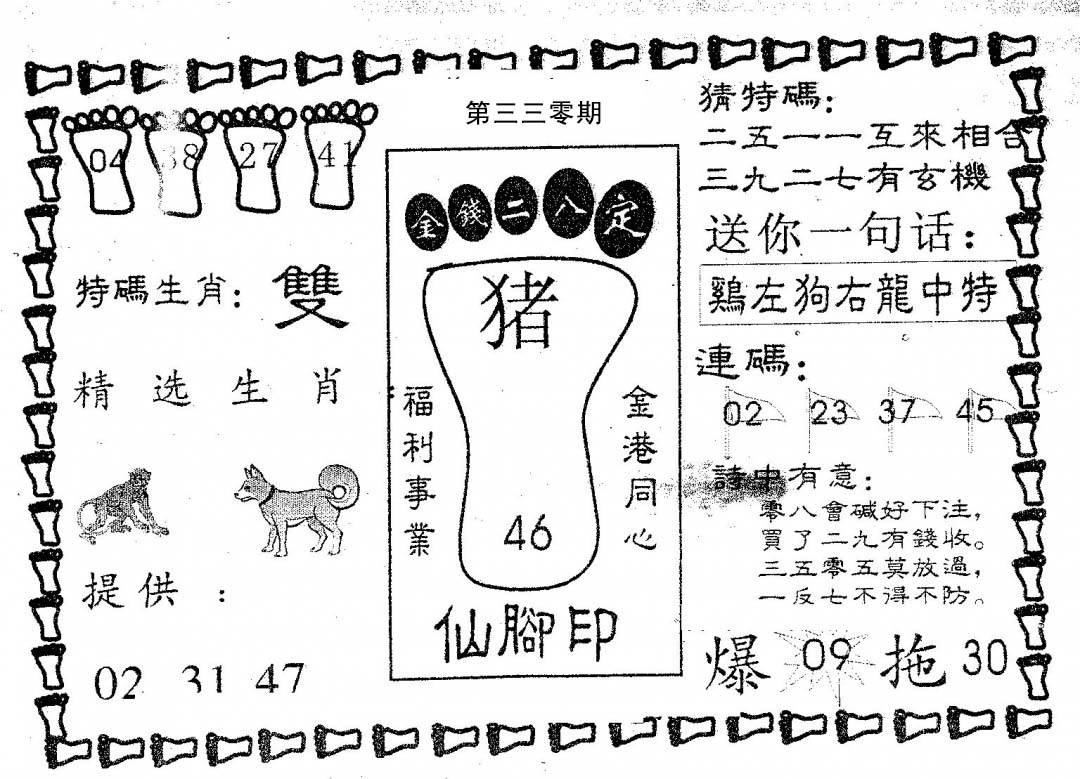 04 38 27 41
特碼生肖：雙
精选生肖
提供：
02 31 47
第三三零期
金錢二八定
猪
福利事業
金港同心
46
仙腳印
猜特碼：
二五一一互來相合
三九二七有玄機
送你一句话：
鷄左狗右龍中特
連碼：
02 23 37 45
詩中有意：
零八會碱好下注，
買了二九有錢收。
三五零五莫放過，
一反七不得不防。
爆 09 拖 30